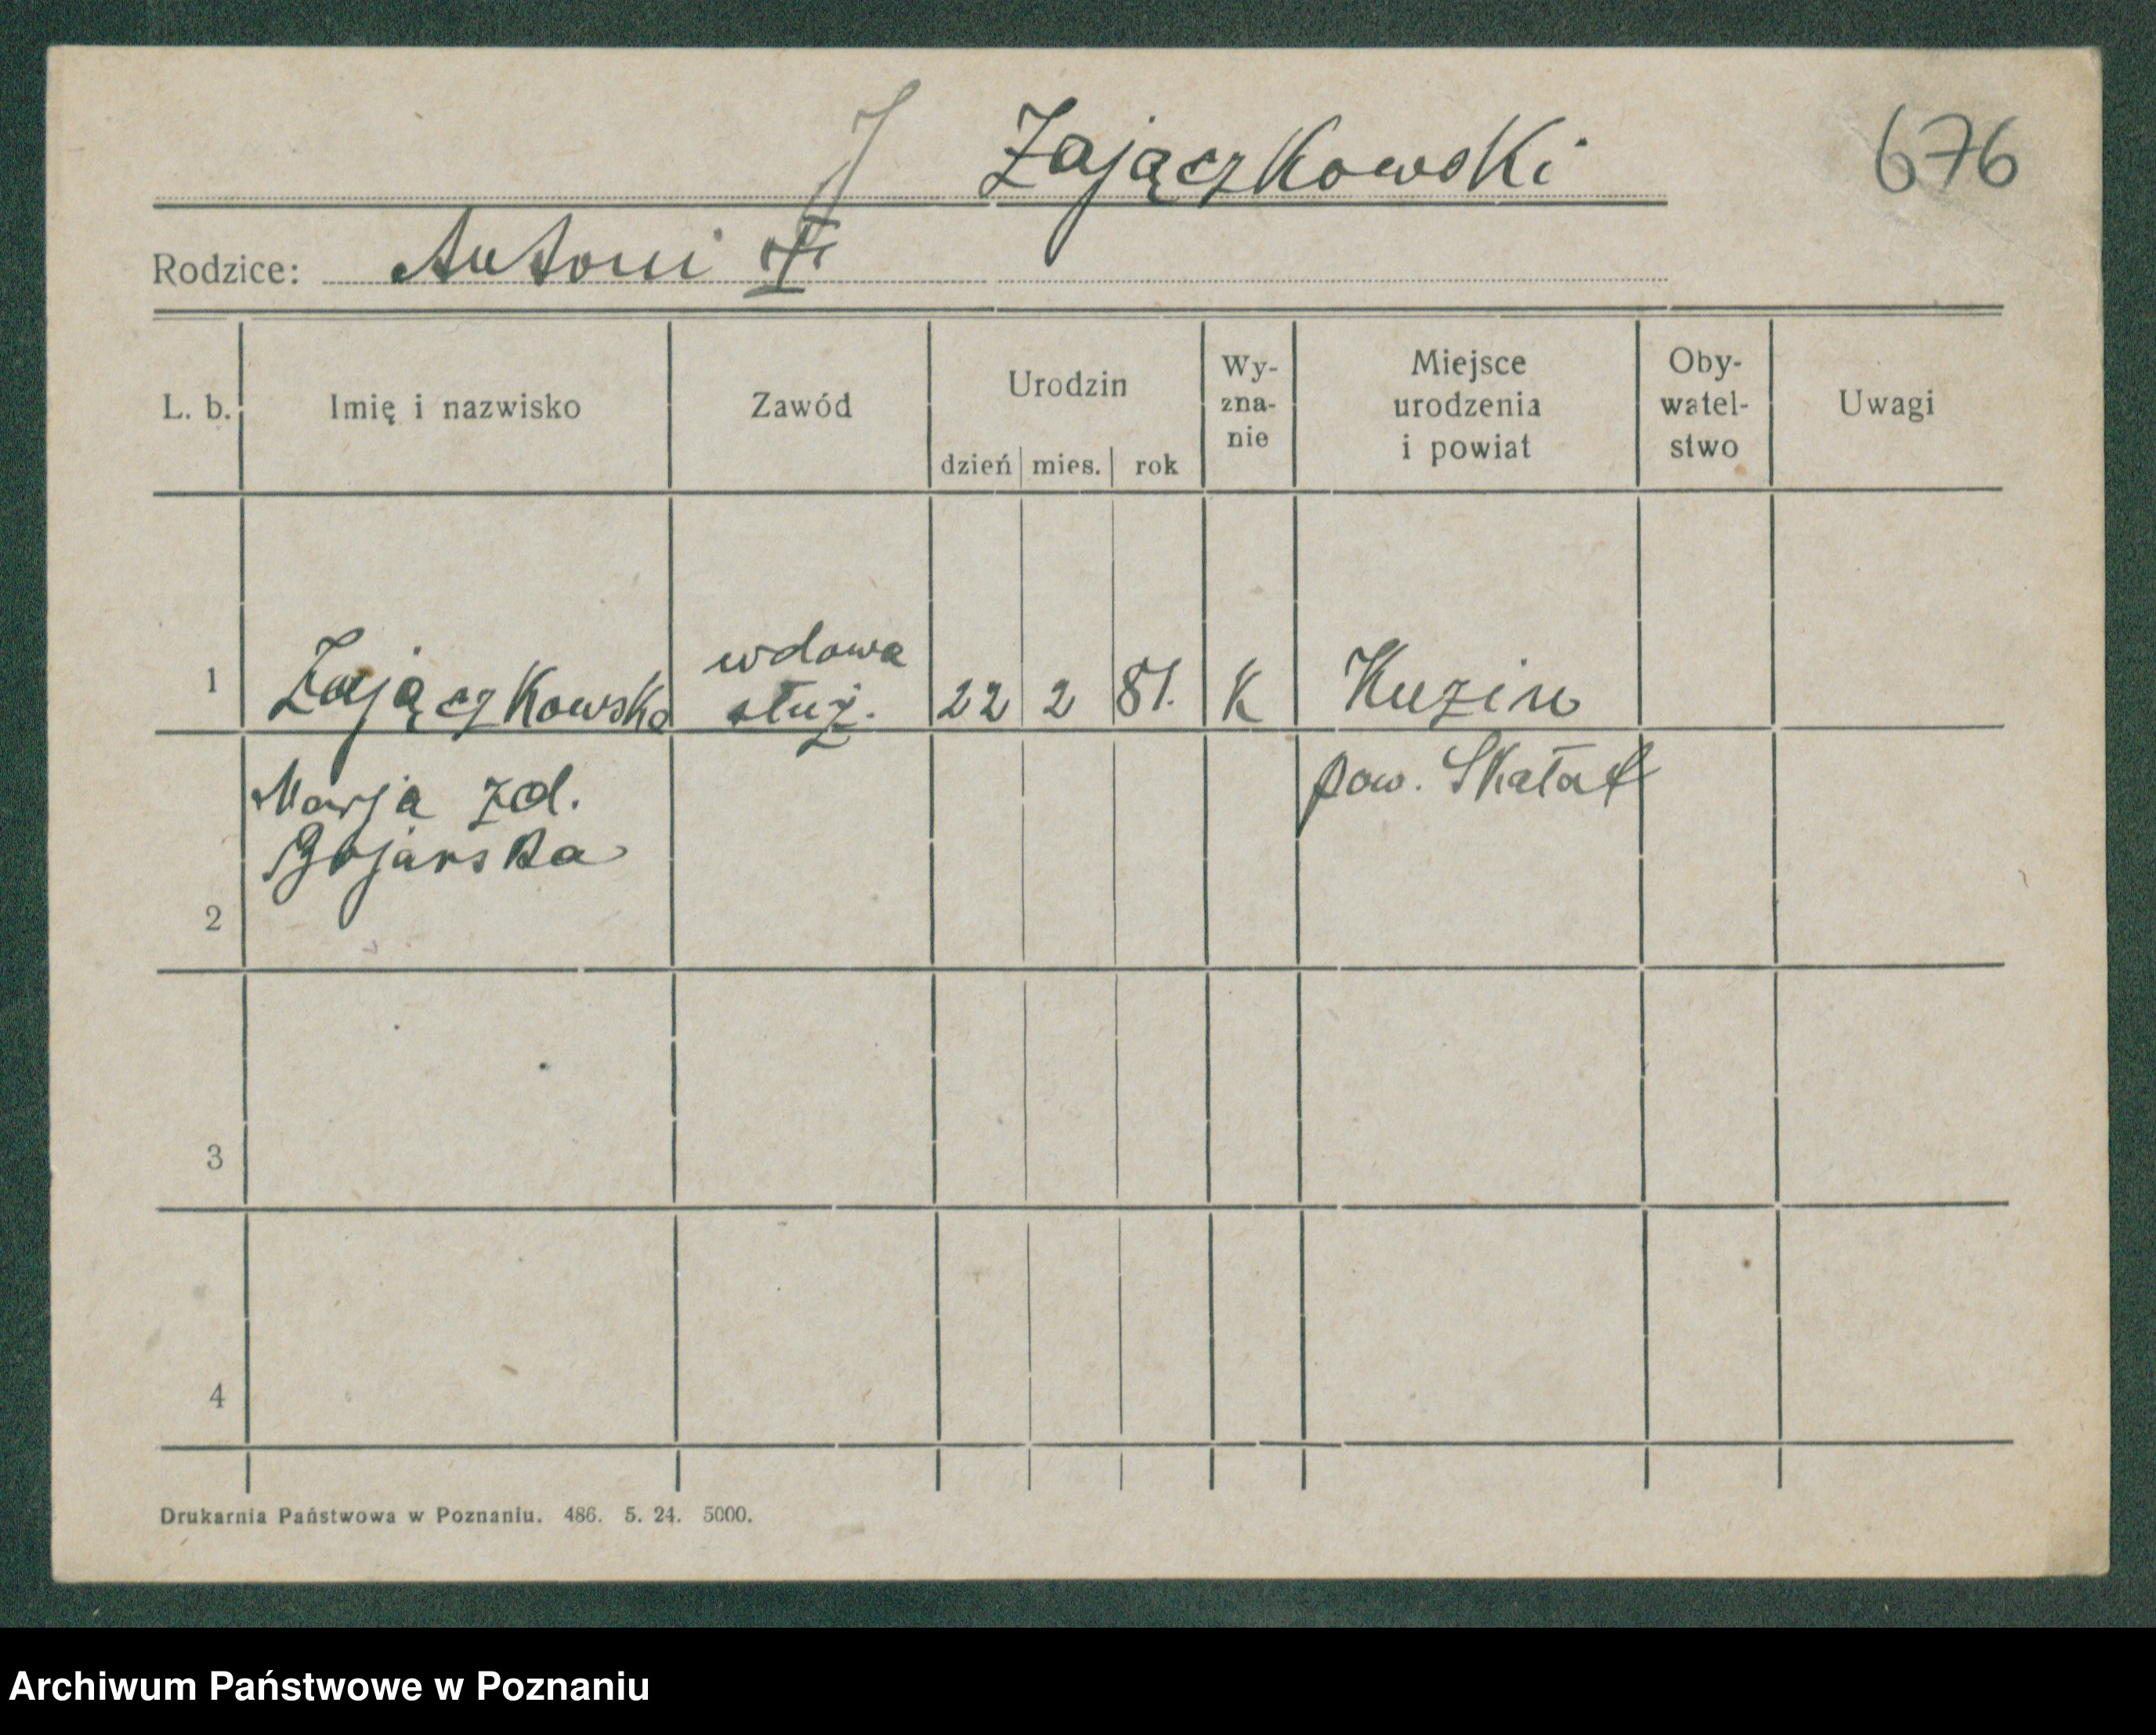 Zajączkowski 676
Rodzice: Antoni
L. b. Imię i nazwisko Zawód Urodzin dzień mies. rok Wy-zna-nie Miejsce urodzenia i powiat Oby-watel-stwo Uwagi
wdowa
1 Zajączkowska służ. 22 2 81. K Kuzin
Marja zd. pow. Skałat
Bojarska
2
3
4
Drukarnia Państwowa w Poznaniu. 486. 5. 24. 5000.
Archiwum Państwowe w Poznaniu